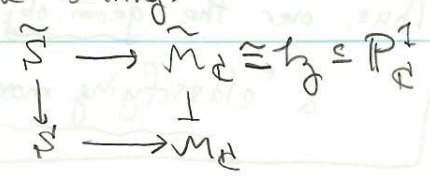 S̃ ⟶ M̃_ℂ ≅ 𝔥 ⊆ ℙ¹_ℂ
↓ ↓
S ⟶ M_ℂ